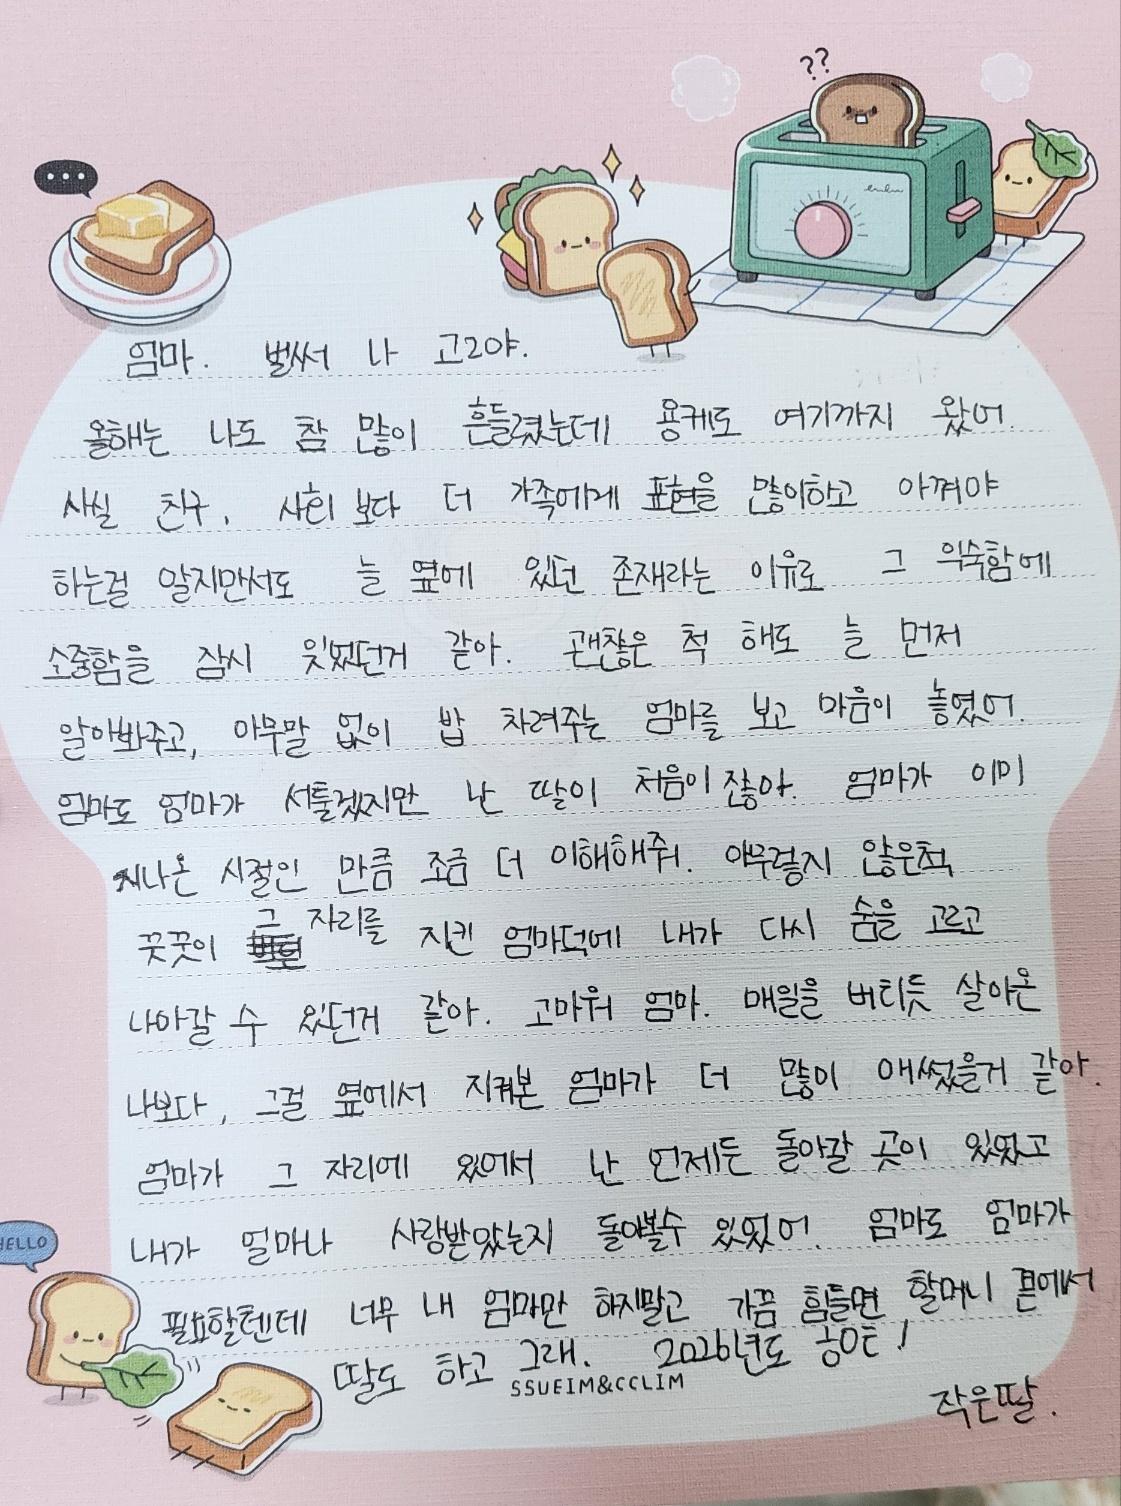 ??
엄마. 벌써 나 고2야.
올해는 나도 참 많이 흔들렸는데 용케도 여기까지 왔어.
사실 친구, 사회 보다 더 가족에게 표현을 많이하고 아껴야
하는걸 알지만서도 늘 옆에 있던 존재라는 이유로 그 익숙함에
소중함을 잠시 잊었던거 같아. 괜찮은 척 해도 늘 먼저
알아봐주고, 아무말 없이 밥 차려주는 엄마를 보고 마음이 놓였어.
엄마도 엄마가 서툴겠지만 난 딸이 처음이잖아. 엄마가 이미
지나온 시절인 만큼 조금 더 이해해줘. 아무렇지 않은척
꿋꿋이 그 자리를 지킨 엄마덕에 내가 다시 숨을 고르고
나아갈 수 있던거 같아. 고마워 엄마. 매일을 버티듯 살아온
나보다, 그걸 옆에서 지켜본 엄마가 더 많이 애썼을거 같아.
엄마가 그 자리에 있어서 난 언제든 돌아갈 곳이 있었고
내가 얼마나 사랑받았는지 돌아볼수 있었어. 엄마도 엄마가
필요할텐데 너무 내 엄마만 하지말고 가끔 힘들면 할머니 곁에서
딸도 하고 그래. 2026년도 응야!
작은딸.
HELLO
SSUEIM&CCLIM